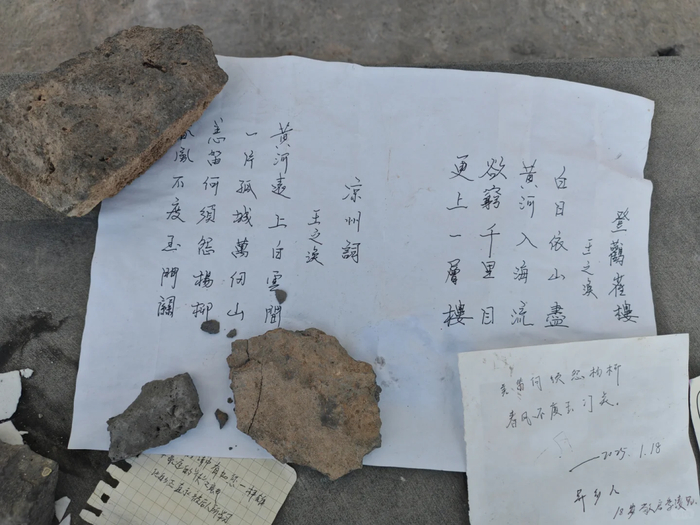 登鸛雀樓
王之涣
白日依山盡
黄河入海流
欲窮千里目
更上一層樓
凉州詞
王之涣
黄河遠上白雲間
一片孤城萬仞山
羌笛何須怨楊柳
風不度玉門關
何须怨杨柳
春风不度玉门关。
——2025.1.18
异乡人
18岁